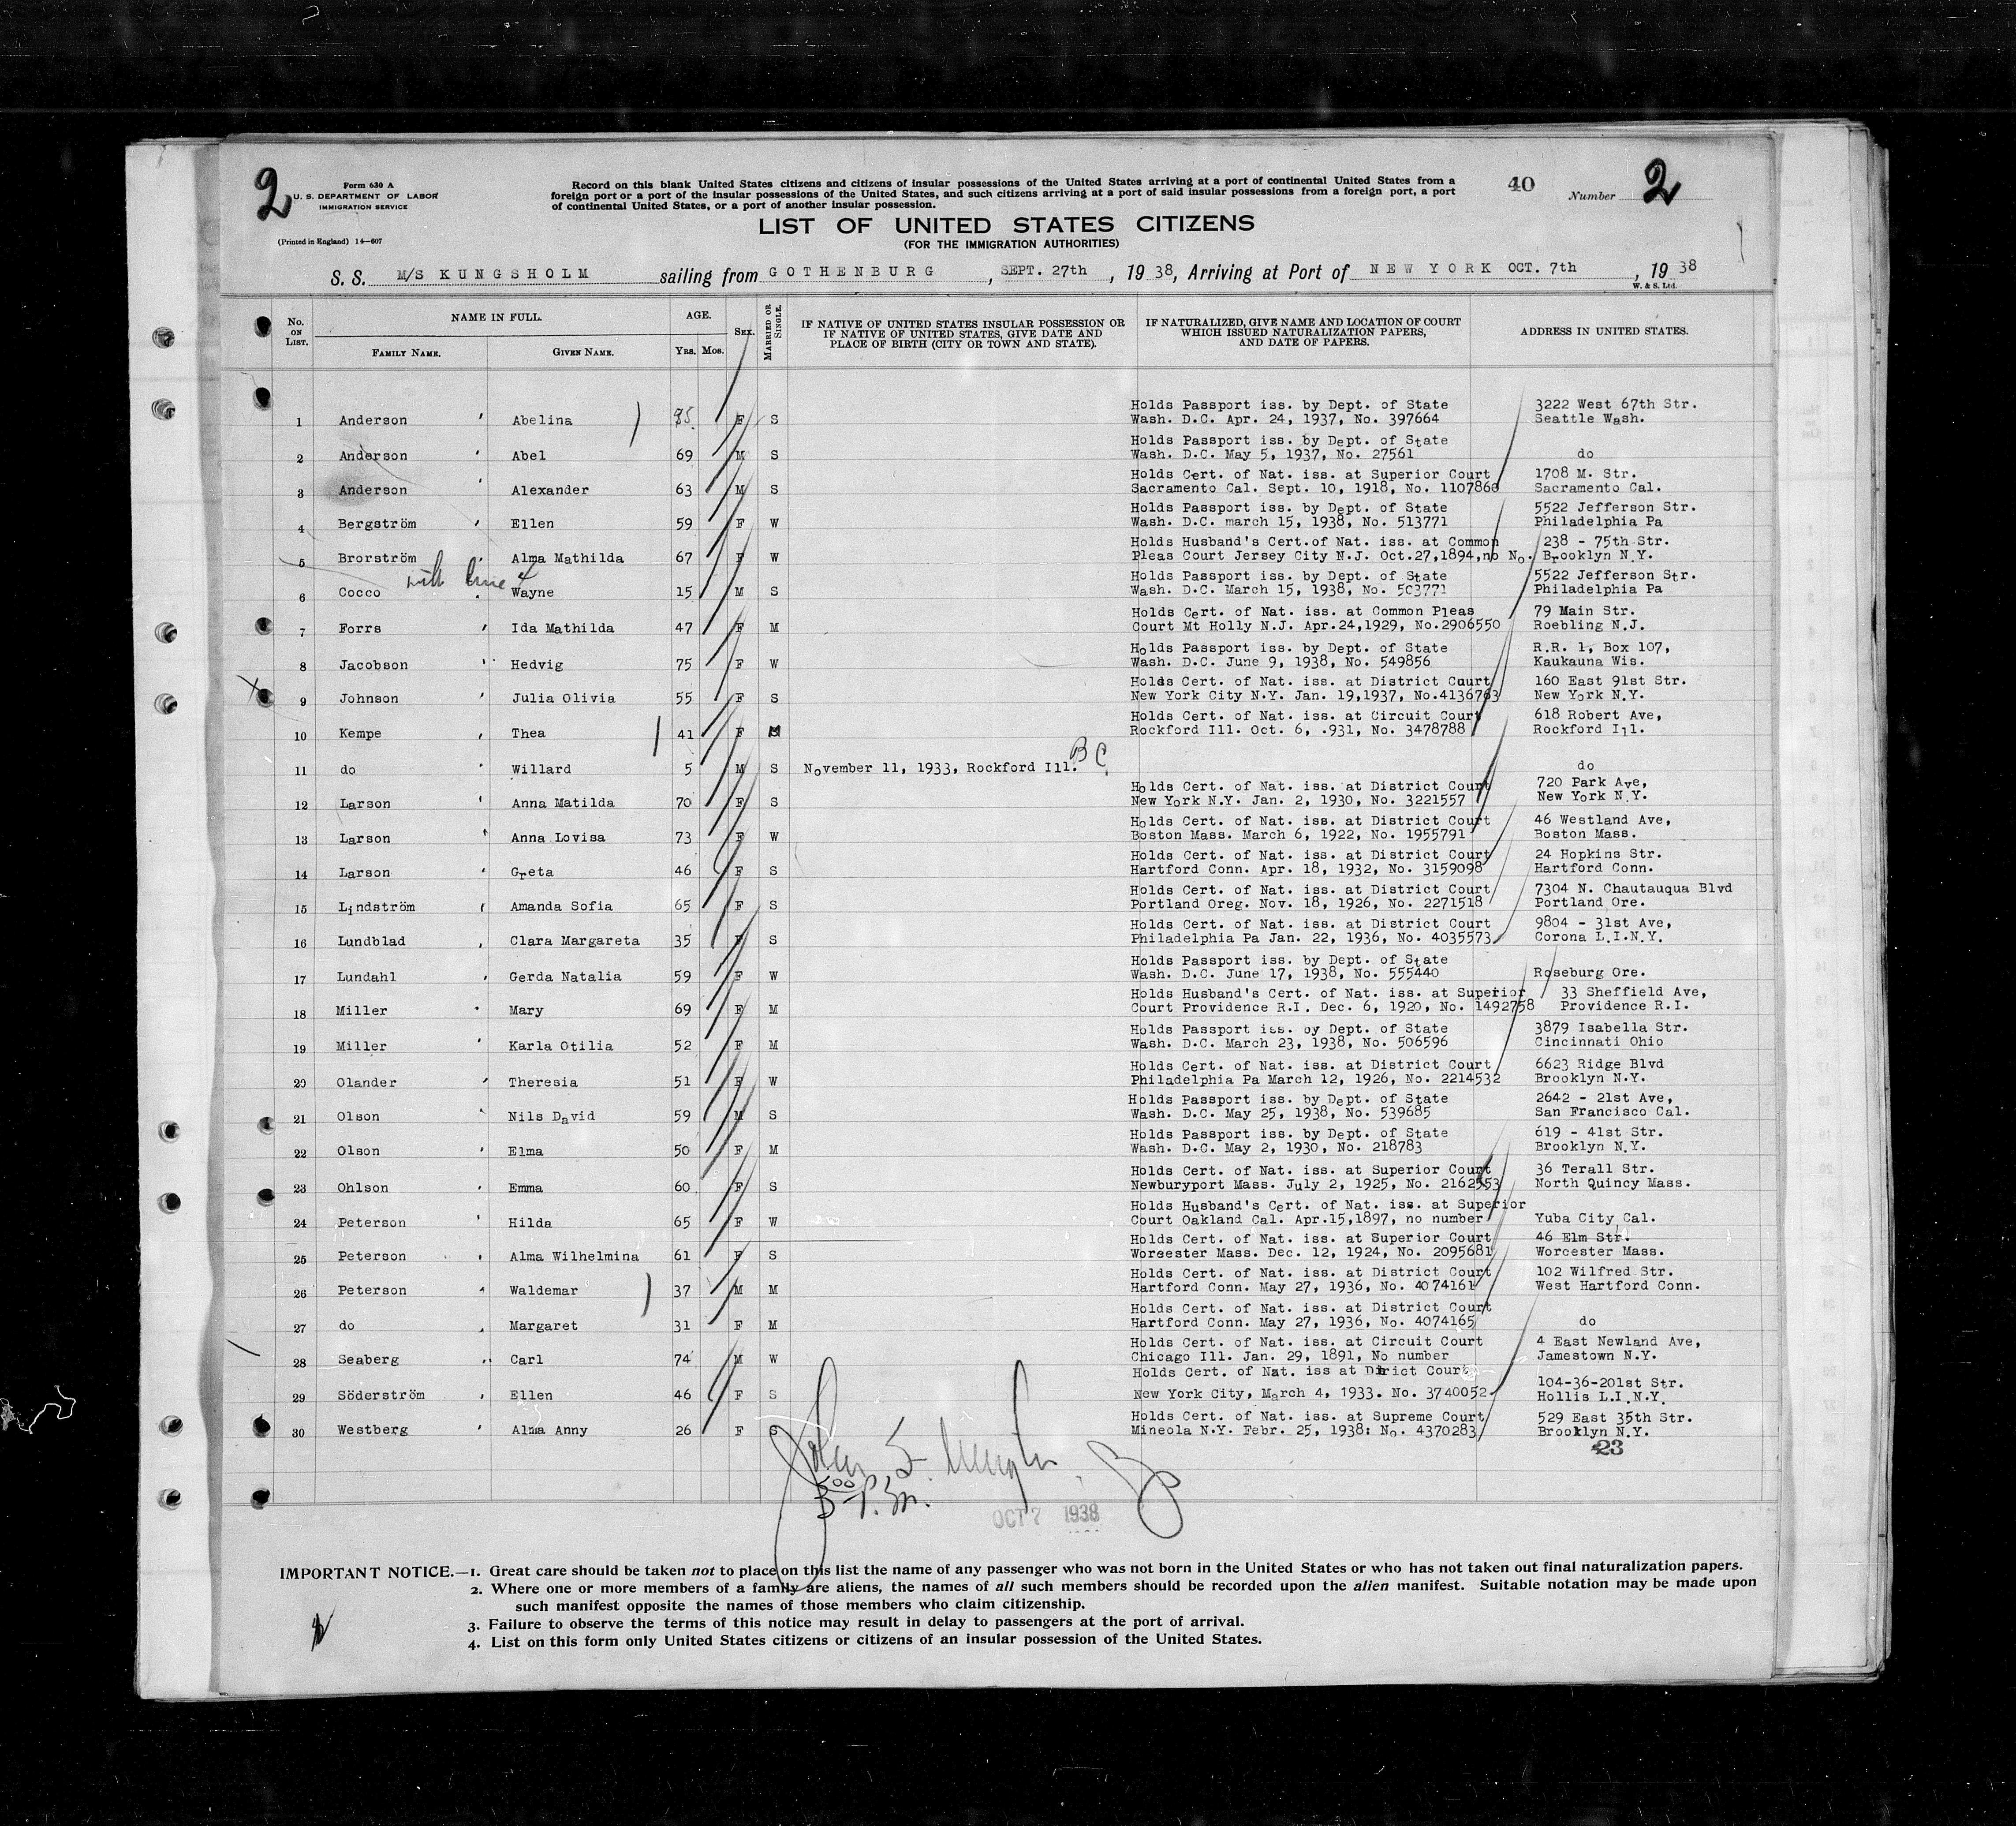 2
Form 630 A
U. S. DEPARTMENT OF LABOR
IMMIGRATION SERVICE
(Printed in England) 14—607
Record on this blank United States citizens and citizens of insular possessions of the United States arriving at a port of continental United States from a
foreign port or a port of the insular possessions of the United States, and such citizens arriving at a port of said insular possessions from a foreign port, a port
of continental United States, or a port of another insular possession.
40
Number 2
LIST OF UNITED STATES CITIZENS
(FOR THE IMMIGRATION AUTHORITIES)
S. S. M/S KUNGSHOLM sailing from GOTHENBURG, SEPT. 27th, 19 38, Arriving at Port of NEW YORK OCT. 7th, 19 38
W. & S. Ltd.
No. ON LIST. NAME IN FULL. AGE. SEX. MARRIED OR SINGLE. IF NATIVE OF UNITED STATES INSULAR POSSESSION OR IF NATIVE OF UNITED STATES, GIVE DATE AND PLACE OF BIRTH (CITY OR TOWN AND STATE). IF NATURALIZED, GIVE NAME AND LOCATION OF COURT WHICH ISSUED NATURALIZATION PAPERS, AND DATE OF PAPERS. ADDRESS IN UNITED STATES.
FAMILY NAME. GIVEN NAME. YRS. MOS.
Holds Passport iss. by Dept. of State 3222 West 67th Str.
1 Anderson Abelina F S Wash. D.C. Apr. 24, 1937, No. 397664 Seattle Wash.
Holds Passport iss. by Dept. of State
2 Anderson Abel 69 M S Wash. D.C. May 5, 1937, No. 27561 do
Holds Cert. of Nat. iss. at Superior Court 1708 M. Str.
3 Anderson Alexander 63 M S Sacramento Cal. Sept. 10, 1918, No. 1107866 Sacramento Cal.
Holds Passport iss. by Dept. of State 5522 Jefferson Str.
4 Bergström Ellen 59 F W Wash. D.C. march 15, 1938, No. 513771 Philadelphia Pa
Holds Husband's Cert.of Nat. iss. at Common 238 - 75th Str.
5 Brorström Alma Mathilda 67 F W Pleas Court Jersey City N.J. Oct.27,1894,no No. Brooklyn N.Y.
with line 4
Holds Passport iss. by Dept. of State 5522 Jefferson Str.
6 Cocco Wayne 15 M S Wash. D.C. March 15, 1938, No. 503771 Philadelphia Pa
Holds Cert. of Nat. iss. at Common Pleas 79 Main Str.
7 Forrs Ida Mathilda 47 F M Court Mt Holly N.J. Apr.24,1929, No.2906550 Roebling N.J.
Holds Passport iss. by Dept. of State R.R. 1, Box 107,
8 Jacobson Hedvig 75 F W Wash. D.C. June 9, 1938, No. 549856 Kaukauna Wis.
Holds Cert. of Nat. iss. at District Cuurt 160 East 91st Str.
9 Johnson Julia Olivia 55 F S New York City N.Y. Jan. 19,1937, No.4136763 New York N.Y.
Holds Cert. of Nat. iss. at Circuit Court 618 Robert Ave,
10 Kempe Thea 41 F M Rockford Ill. Oct. 6, .931, No. 3478788 Rockford Ill.
BC
11 do Willard 5 M S November 11, 1933, Rockford Ill. do
Holds Cert. of Nat. iss. at District Court 720 Park Ave,
12 Larson Anna Matilda 70 F S New York N.Y. Jan. 2, 1930, No. 3221557 New York N.Y.
Holds Cert. of Nat. iss. at District Court 46 Westland Ave,
13 Larson Anna Lovisa 73 F W Boston Mass. March 6, 1922, No. 1955791 Boston Mass.
Holds Cert. of Nat. iss. at District Court 24 Hopkins Str.
14 Larson Greta 46 F S Hartford Conn. Apr. 18, 1932, No. 3159098 Hartford Conn.
Holds Cert. of Nat. iss. at District Court 7304 N. Chautauqua Blvd
15 Lindström Amanda Sofia 65 F S Portland Oreg. Nov. 18, 1926, No. 2271518 Portland Ore.
Holds Cert. of Nat. iss. at District Court 9804 - 31st Ave,
16 Lundblad Clara Margareta 35 F S Philadelphia Pa Jan. 22, 1936, No. 4035573 Corona L.I.N.Y.
Holds Passport iss. by Dept. of State
17 Lundahl Gerda Natalia 59 F W Wash. D.C. June 17, 1938, No. 555440 Roseburg Ore.
Holds Husband's Cert. of Nat. iss. at Superior 33 Sheffield Ave,
18 Miller Mary 69 F M Court Providence R.I. Dec. 6, 1920, No. 1492758 Providence R.I.
Holds Passport iss. by Dept. of State 3879 Isabella Str.
19 Miller Karla Otilia 52 F M Wash. D.C. March 23, 1938, No. 506596 Cincinnati Ohio
Holds Cert. of Nat. iss. at District Court 6623 Ridge Blvd
20 Olander Theresia 51 F W Philadelphia Pa March 12, 1926, No. 2214532 Brooklyn N.Y.
Holds Passport iss. by Dept. of State 2642 - 21st Ave,
21 Olson Nils David 59 M S Wash. D.C. May 25, 1938, No. 539685 San Francisco Cal.
Holds Passport iss. by Dept. of State 619 - 41st Str.
22 Olson Elma 50 F M Wash. D.C. May 2, 1930, No. 218783 Brooklyn N.Y.
Holds Cert. of Nat. iss. at Superior Court 36 Terall Str.
23 Ohlson Emma 60 F S Newburyport Mass. July 2, 1925, No. 2162553 North Quincy Mass.
Holds Husband's Cert. of Nat. iss. at Superior
24 Peterson Hilda 65 F W Court Oakland Cal. Apr.15,1897, no number Yuba City Cal.
Holds Cert. of Nat. iss. at Superior Court 46 Elm Str.
25 Peterson Alma Wilhelmina 61 F S Worcester Mass. Dec. 12, 1924, No. 2095681 Worcester Mass.
Holds Cert. of Nat. iss. at District Court 102 Wilfred Str.
26 Peterson Waldemar 37 M M Hartford Conn. May 27, 1936, No. 4074161 West Hartford Conn.
Holds Cert. of Nat. iss. at District Court
27 do Margaret 31 F M Hartford Conn. May 27, 1936, No. 4074165 do
Holds Cert. of Nat. iss. at Circuit Court 4 East Newland Ave,
28 Seaberg Carl 74 M W Chicago Ill. Jan. 29, 1891, No number Jamestown N.Y.
Holds Cert. of Nat. iss at District Court 104-36-201st Str.
29 Söderström Ellen 46 F S New York City, March 4, 1933. No. 3740052 Hollis L.I.N.Y.
Holds Cert. of Nat. iss. at Supreme Court 529 East 35th Str.
30 Westberg Alma Anny 26 F S Mineola N.Y. Febr. 25, 1938: No. 4370283 Brooklyn N.Y.
23
5 00 P.M.
OCT 7 1938
IMPORTANT NOTICE.—1. Great care should be taken not to place on this list the name of any passenger who was not born in the United States or who has not taken out final naturalization papers.
2. Where one or more members of a family are aliens, the names of all such members should be recorded upon the alien manifest. Suitable notation may be made upon
such manifest opposite the names of those members who claim citizenship.
3. Failure to observe the terms of this notice may result in delay to passengers at the port of arrival.
4. List on this form only United States citizens or citizens of an insular possession of the United States.